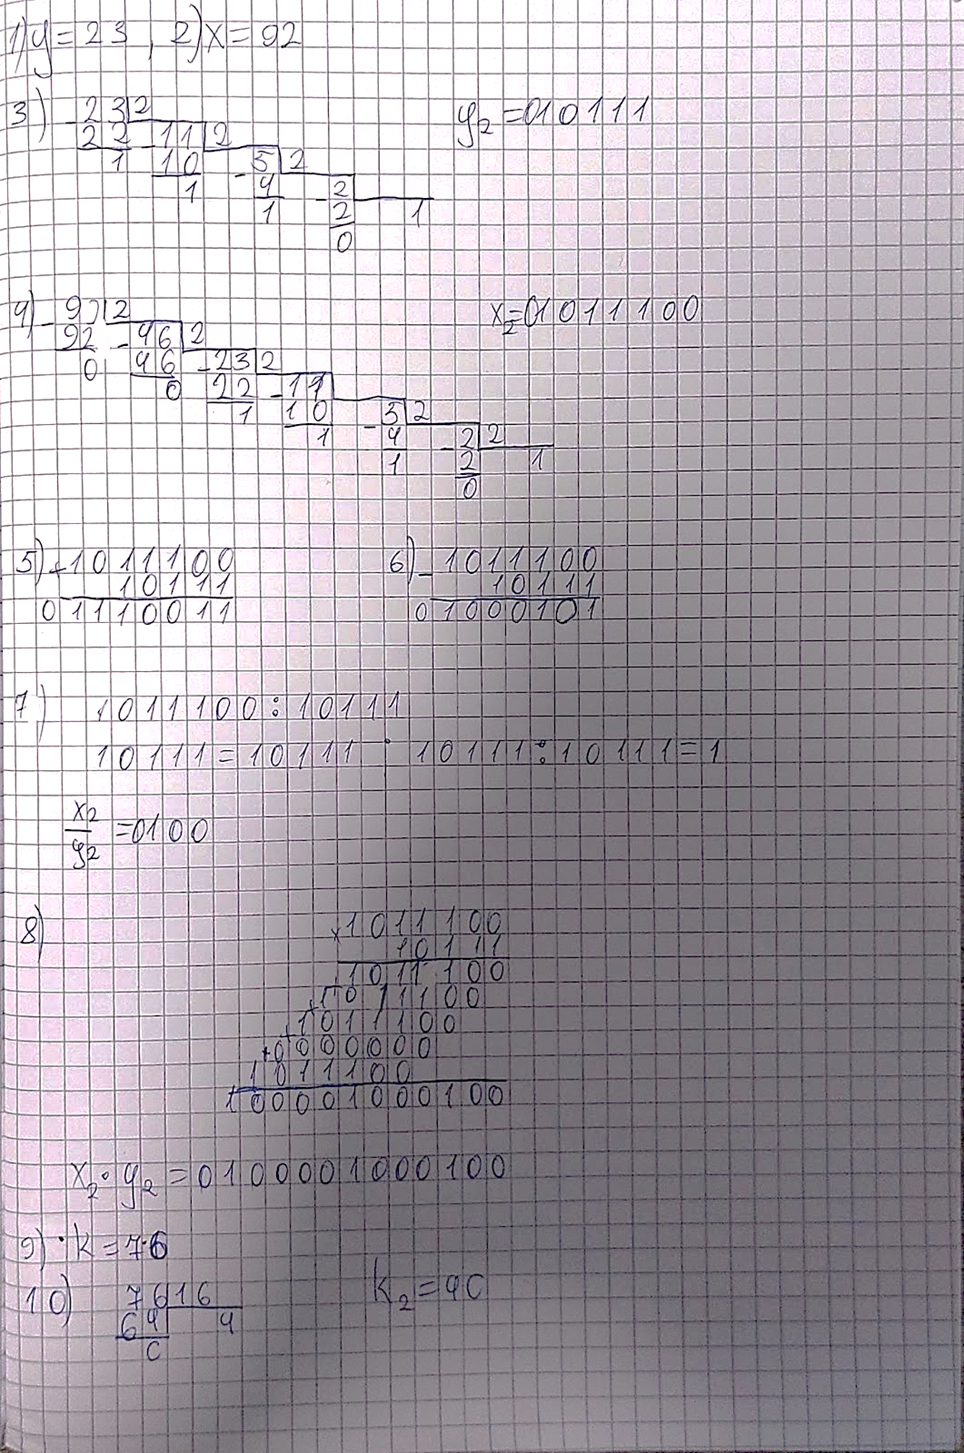 1) y = 23 , 2) x = 92
3) - 23 2 y2 = 010111
22 - 11 2
1 10 - 5 2
1 4 - 2
1 2 1
0
4) - 92 2 x2 = 01011100
92 - 46 2
0 46 - 23 2
0 22 - 11
1 10 - 5 2
1 4 - 2 2
1 2 1
0
5) + 1011100 6) - 1011100
10111 10111
01110011 01000101
7) 1011100 : 10111
10111 = 10111 10111 : 10111 = 1
x2
y2 = 0100
8) × 1011100
10111
1011100
+ 1011100
+ 1011100
+ 0000000
1011100
100001000100
x2 · y2 = 0100001000100
9) · k = 76
10) 76 16 k2 = 4C
64 4
C